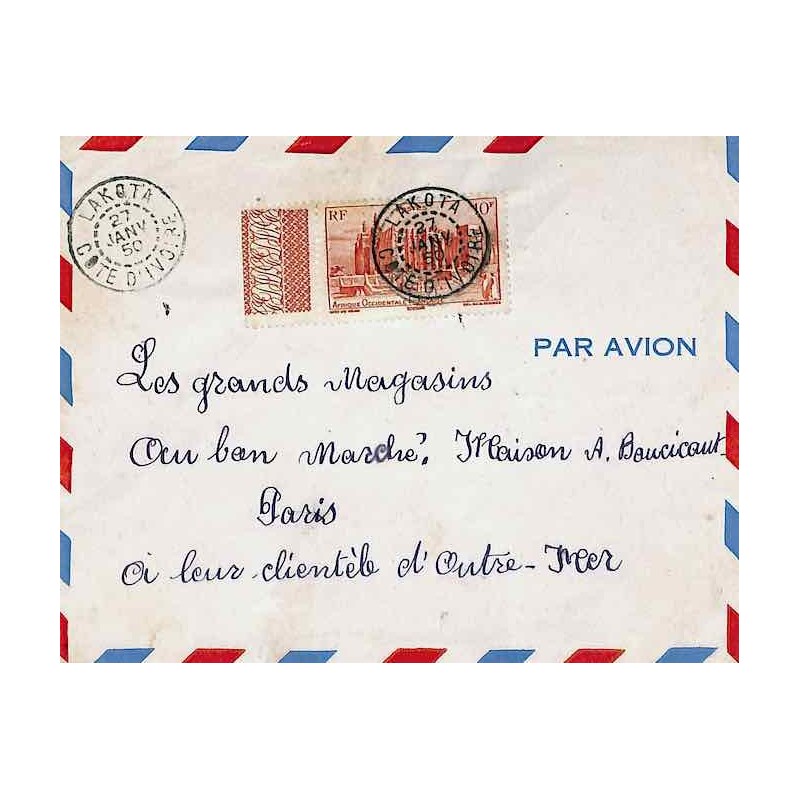 LAKOTA
27
JANV
50
COTE D'IVOIRE
RF
10F
LAKOTA
27
JANV
50
COTE D'IVOIRE
AFRIQUE OCCIDENTALE
PAR AVION
Les grands Magasins
Au bon Marché. Maison A. Boucicaut
Paris
à leur clientèle d'Outre-Mer